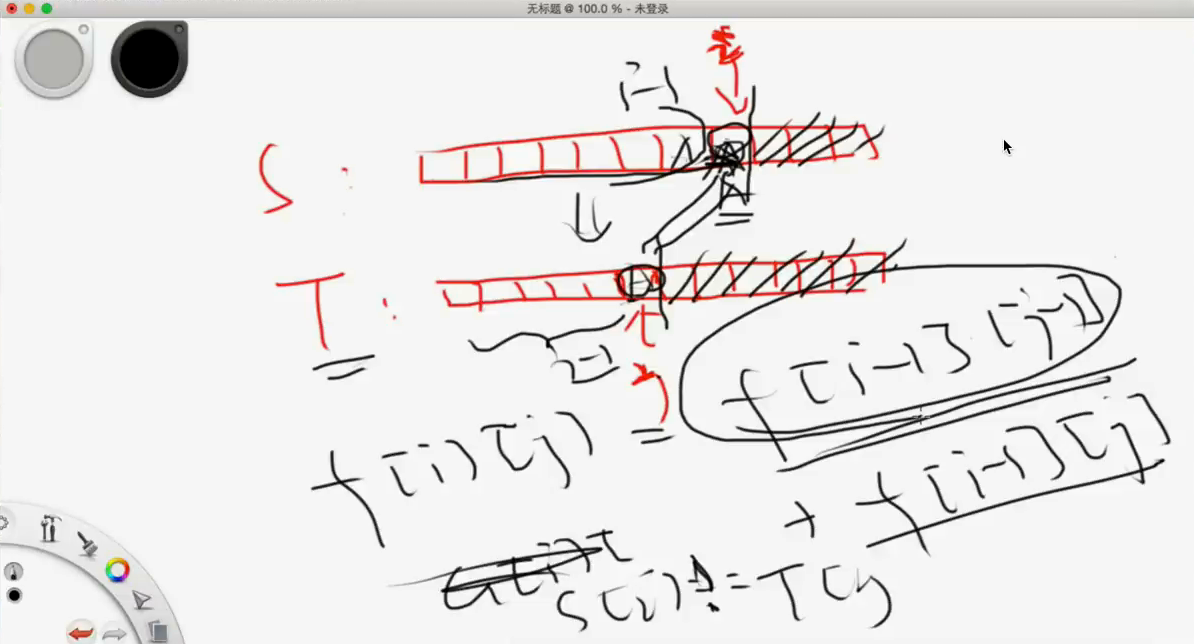 无标题 @ 100.0 % - 未登录
i-1
S:
T:
f[i-1][j-1]
f[i][j] =
+ f[i-1][j]
S[i] != T[j]